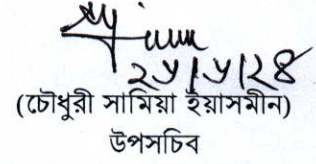 ২১/১/২৪
(চৌধুরী সামিয়া ইয়াসমীন)
উপসচিব